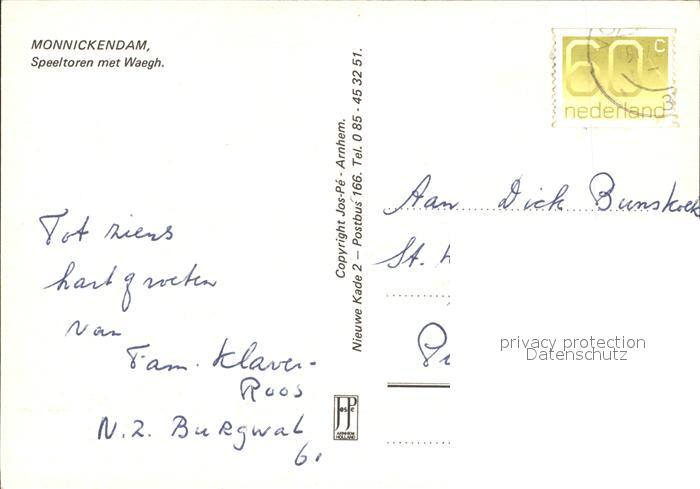 MONNICKENDAM,
Speeltoren met Waegh.
Tot ziens
hart groeten
van
Fam. Klaver-
Roos
N.Z. Burgwal
61
Copyright Jos-Pé - Arnhem.
Nieuwe Kade 2 — Postbus 166. Tel. 0 85 - 45 32 51.
JosPé
ARNHEM
HOLLAND
60 c
nederland
3
Aan Dick Bunskoek
St.
privacy protection
Datenschutz